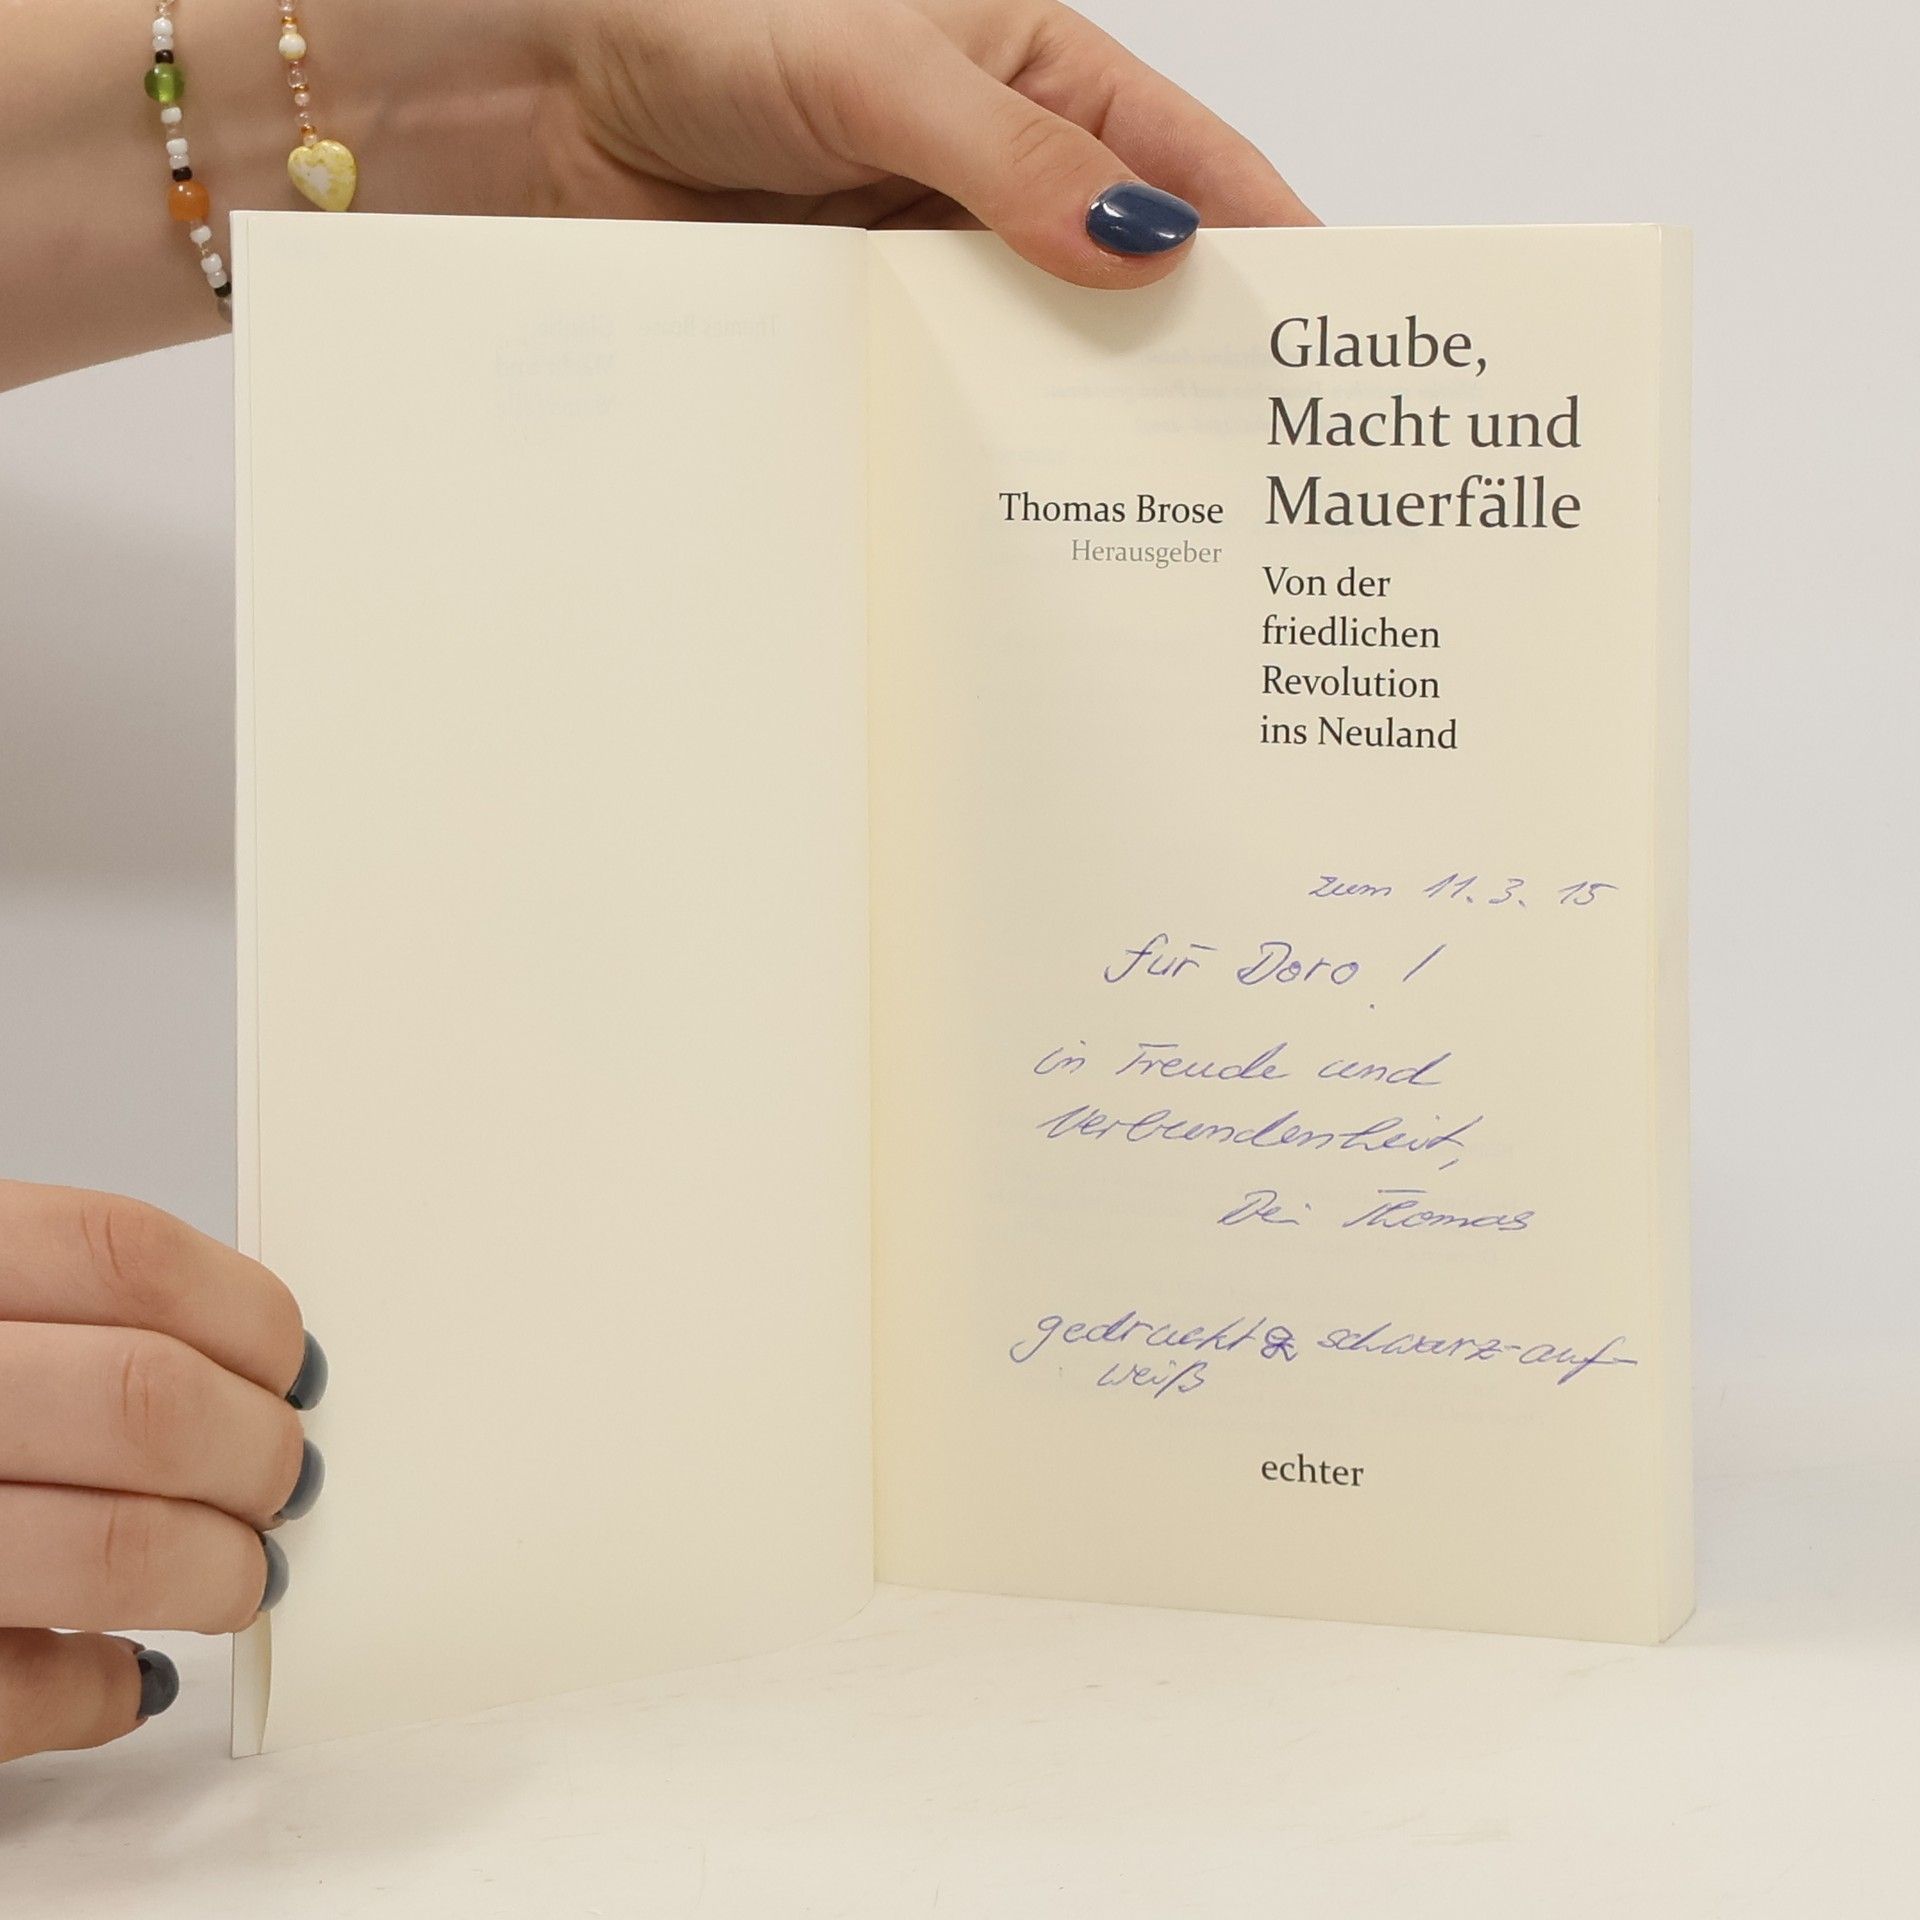 Glaube,
Macht und
Mauerfälle
Thomas Brose
Herausgeber
Von der
friedlichen
Revolution
ins Neuland
zum 11.3.15
für Doro!
in Freude und
Verbundenheit,
Dei Thomas
gedruckt & schwarz-auf-
weiß
echter